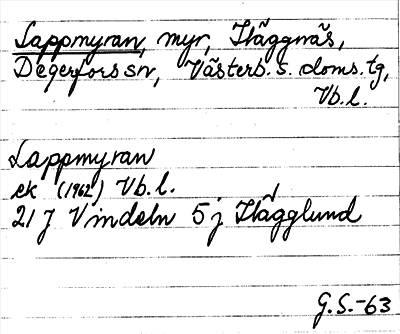 Lappmyran, myr, Häggnäs,
Degerfors sn, Västerb. s. doms. tg,
Vb. l.
Lappmyran
ek (1962) Vb. l.
21 J Vindeln 5 j Hägglund
G.S.-63